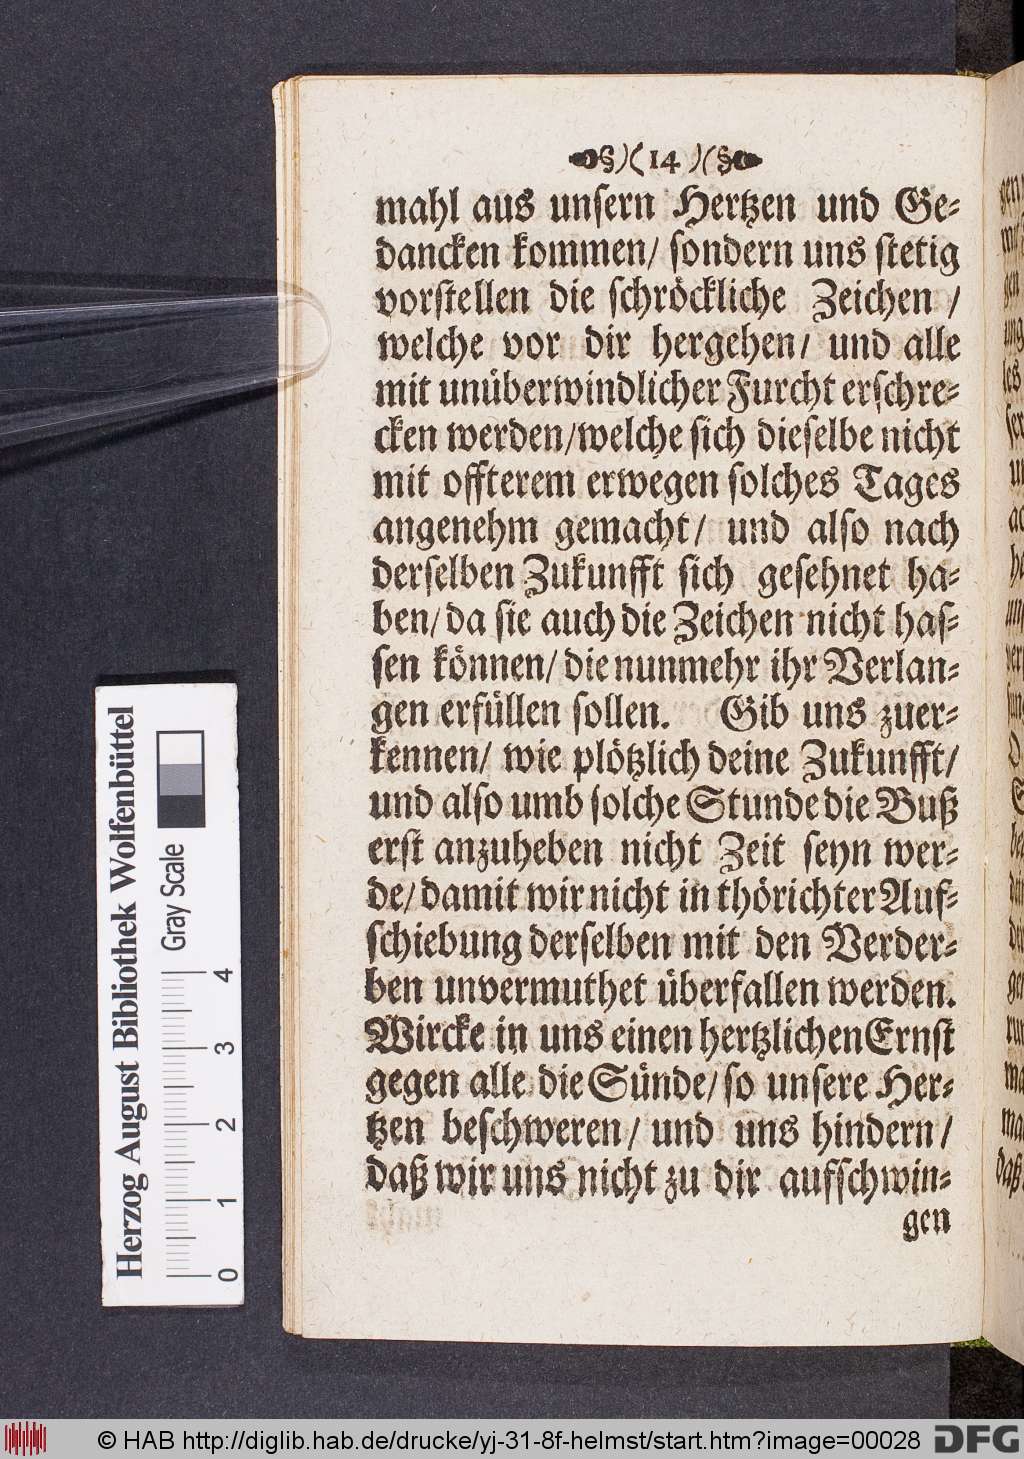 §)(14)(§
mahl aus unsern Hertzen und Ge-
dancken kommen/ sondern uns stetig
vorstellen die schröckliche Zeichen /
welche vor dir hergehen/ und alle
mit unüberwindlicher Furcht erschre-
cken werden/welche sich dieselbe nicht
mit offterem erwegen solches Tages
angenehm gemacht/ und also nach
derselben Zukunfft sich gesehnet ha-
ben/ da sie auch die Zeichen nicht has-
sen können/ die nunmehr ihr Verlan-
gen erfüllen sollen. Gib uns zuer-
kennen/ wie plötzlich deine Zukunfft/
und also umb solche Stunde die Buß
erst anzuheben nicht Zeit seyn wer-
de/ damit wir nicht in thörichter Auf-
schiebung derselben mit den Verder-
ben unvermuthet überfallen werden.
Wircke in uns einen hertzlichen Ernst
gegen alle die Sünde/ so unsere Her-
tzen beschweren/ und uns hindern/
daß wir uns nicht zu dir aufschwin-
gen
Herzog August Bibliothek Wolfenbüttel
Gray Scale
0 1 2 3 4
© HAB http://diglib.hab.de/drucke/yj-31-8f-helmst/start.htm?image=00028
DFG